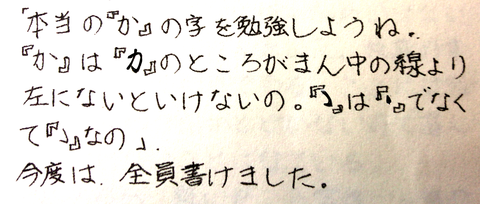 「本当の『か』の字を勉強しようね。
『か』は『カ』のところがまん中の線より
左にないといけないの。『』は『』でなく
て『』なの」.
今度は、全員書けました。